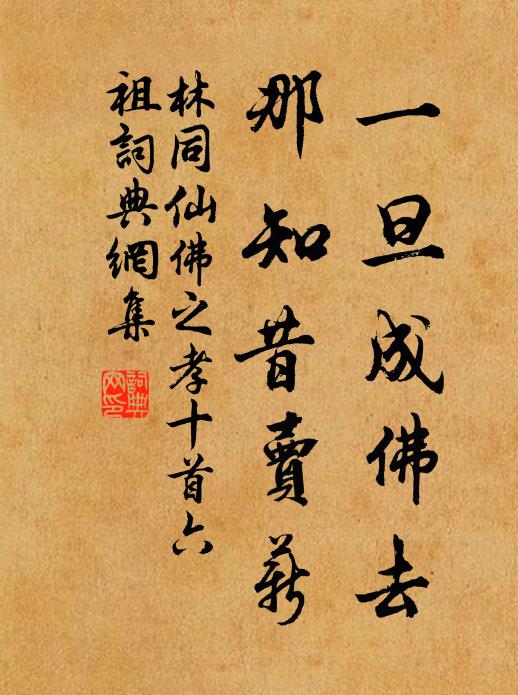 一旦成佛去
那知昔賣薪
林同仙佛之孝十首六
祖詞典網集
詞典
网印